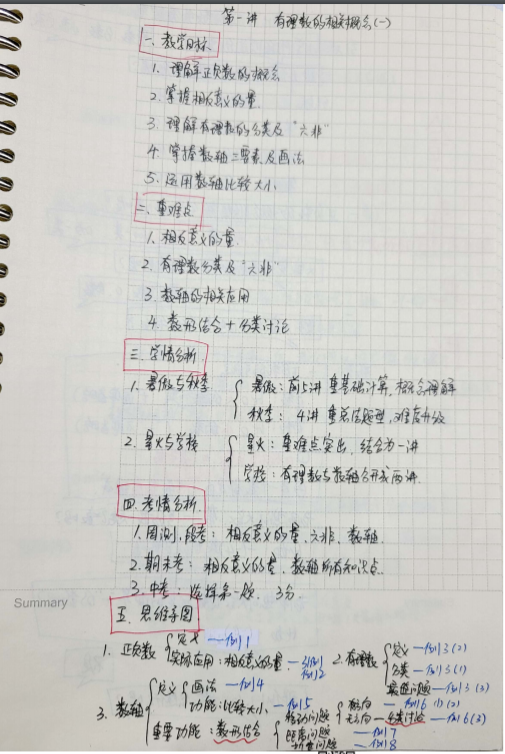 第一讲 有理数的相关概念(一)
一、教学目标
1. 理解正负数的概念
2. 掌握相反意义的量
3. 理解有理数的分类及"六非"
4. 掌握数轴三要素及画法
5. 运用数轴比较大小
二、重难点
1. 相反意义的量
2. 有理数分类及"六非"
3. 数轴的相关应用
4. 数形结合+分类讨论
三、学情分析
1. 暑假与秋季
暑假:前5讲 重基础计算,概念理解
秋季:4讲 重总结题型,难度升级
2. 星火与学校
星火:重难点突出,结合为一讲
学校:有理数与数轴分开成两讲
四、考情分析
1. 周测、段考:相反意义的量、六非、数轴
2. 期末考:相反意义的量、数轴所有知识点
3. 中考:选择第一题,3分
Summary
五、思维导图
1. 正负数
定义——例1
实际应用:相反意义的量——
例2
2. 有理数
定义——例3(2)
分类——例3(1)
——例3(3)
3. 数轴
定义
画法——例4
功能:比较大小——例5
重要功能:数形结合
移动问题
有方向——例6(1)(2)
无方向——分类讨论——例6(3)
距离问题——例7
折叠问题——例8